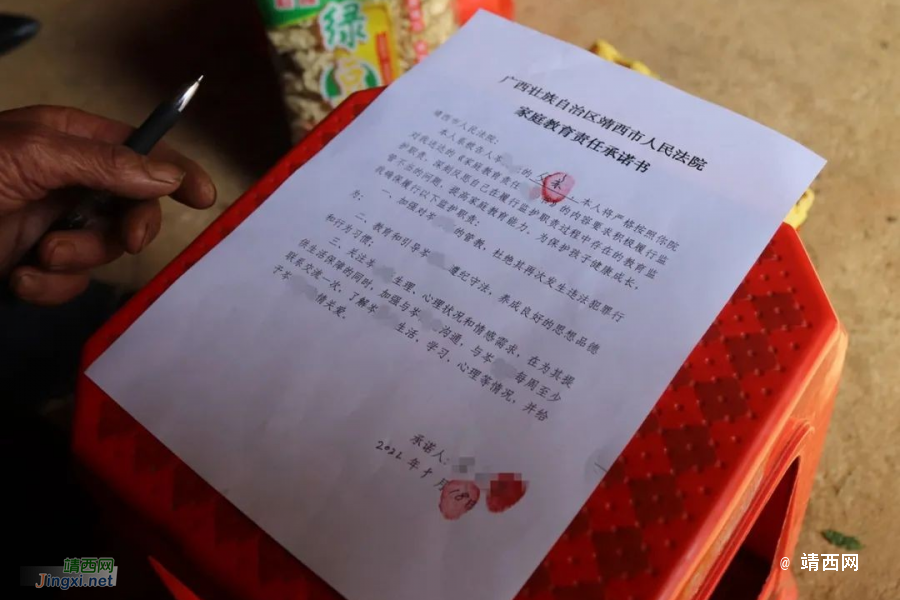 绿
广西壮族自治区靖西市人民法院
家庭教育责任承诺书
靖西市人民法院:
本人系被告人岑 的 父亲 本人将严格按照你院
对我送达的《家庭教育责任 的内容要求积极履行监
护职责,深刻反思自己在履行监护职责过程中存在的教育监
管不当的问题,提高家庭教育能力,为保护孩子健康成长,
我确保履行以下监护职责:
为: 一、加强对岑 的管教,杜绝其再次发生违法犯罪行
二、教育和引导岑 遵纪守法,养成良好的思想品德
和行为习惯;
三、关注岑 生理、心理状况和情感需求,在为其提
供生活保障的同时,加强与岑 沟通,与岑 每周至少
联系交流一次,了解岑 生活、学习、心理等情况,并给
于岑 情关爱.
承诺人:
年 月 18日
靖西网
Jingxi.net
@ 靖西网